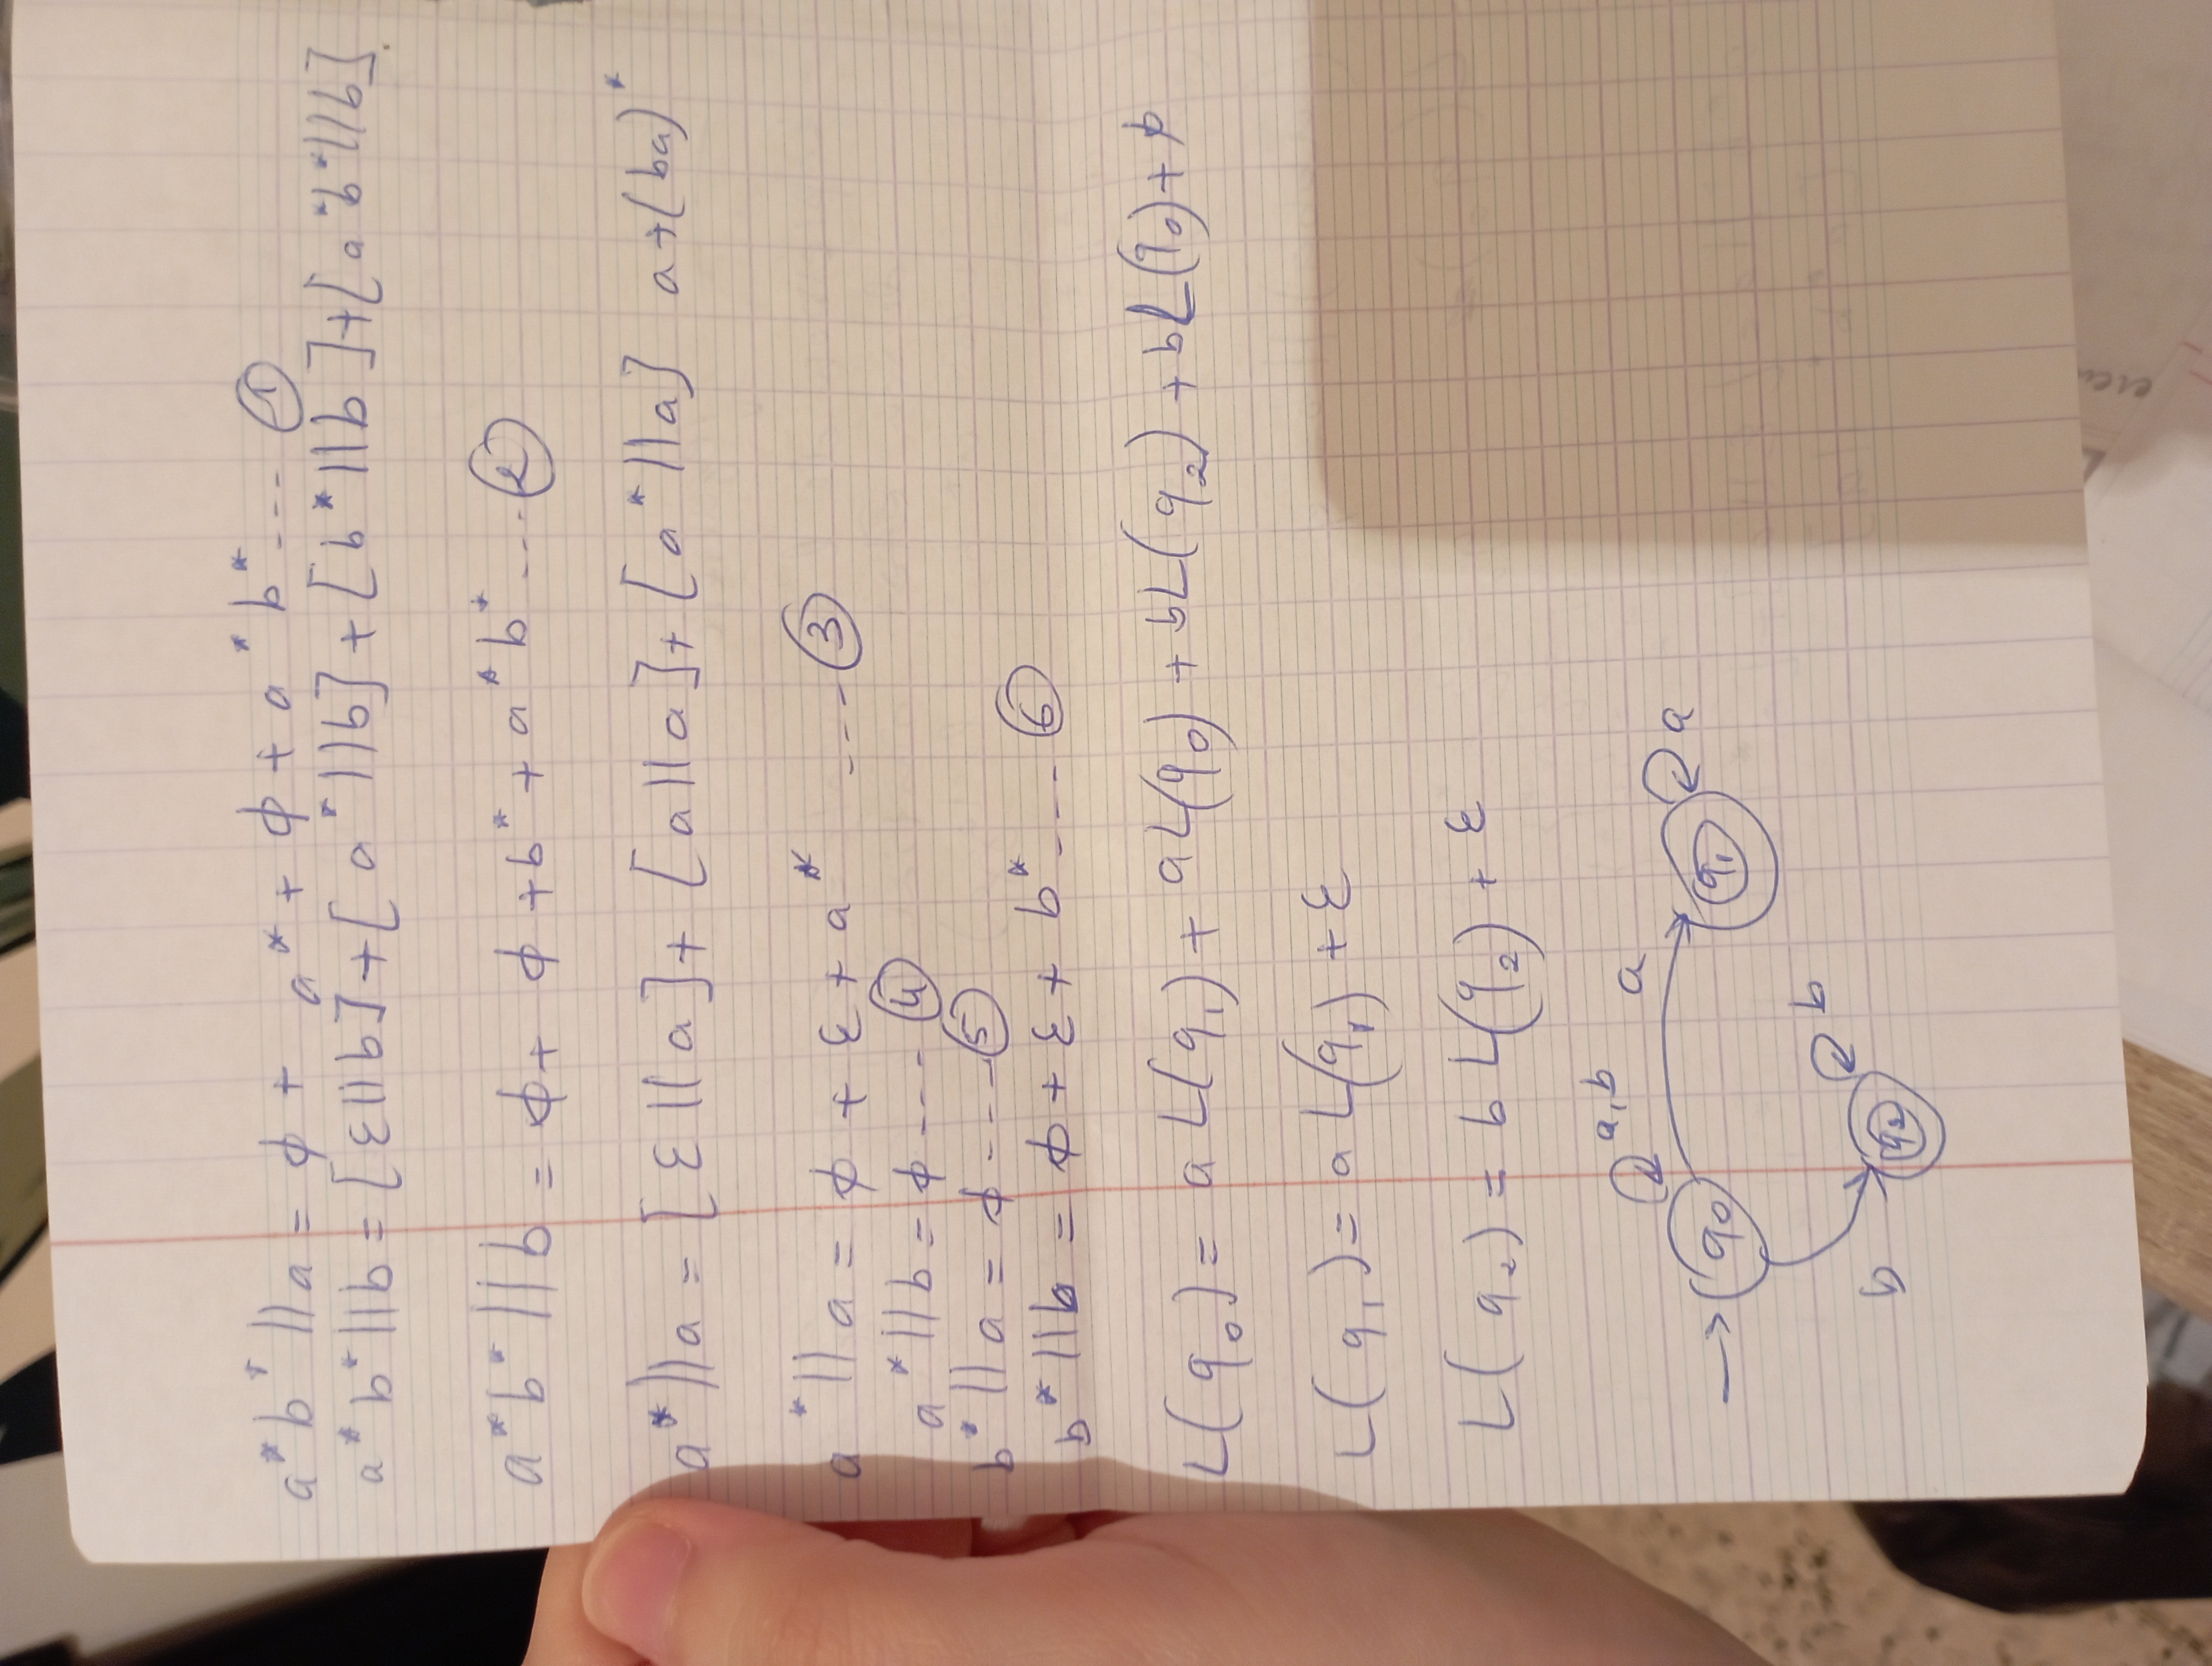 a*b* || a = ϕ + a* + ϕ + a*b* --- ①
a*b* || b = [ε || b] + [a* || b] + [b* || b] + [a*b* || b]
a*b* || b = ϕ + ϕ + b* + a*b* --- ②
a* || a = [ε || a] + [a || a] + [a* || a] a + (ba)*
a* || a = ϕ + ε + a* --- ③
a* || b = ϕ --- ④
b* || a = ϕ --- ⑤
b* || b = ϕ + ε + b* --- ⑥
L(q₀) = a L(q₁) + a L(q₀) + b L(q₂) + b L(q₀) + ϕ
L(q₁) = a L(q₁) + ε
L(q₂) = b L(q₂) + ε
a, b
a
→ q₀ q₁ a
b
b q₂